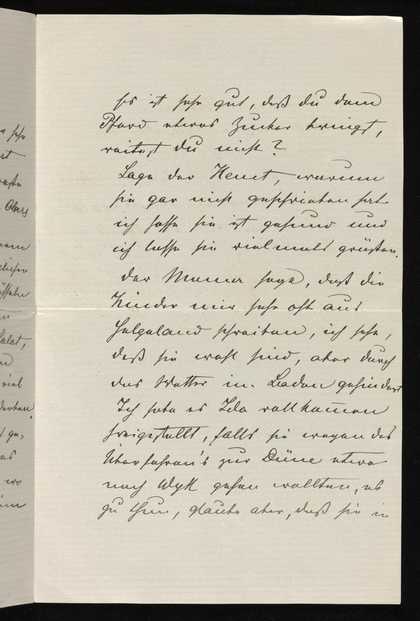 Es ist sehr gut, daß du dem
Pferd etwas Zucker bringst,
reitest du nicht?
Sage der Henet, warum
sie gar nicht geschrieben hat
ich hoffe sie ist gesund und
ich lasse sie vielmals grüßen.
Der Mama sage, daß die
Kinder mir sehr oft aus
Helgoland schreiben, ich sehe,
daß sie wohl sind, aber durch
das Wetter im Baden gehindert
Ich habe es Ida vollkommen
freigestellt, falls sie wegen des
Überfahren's zur Düne etwa
nach Wyk gehen wollten, es
zu thun, glaube aber, daß sie in